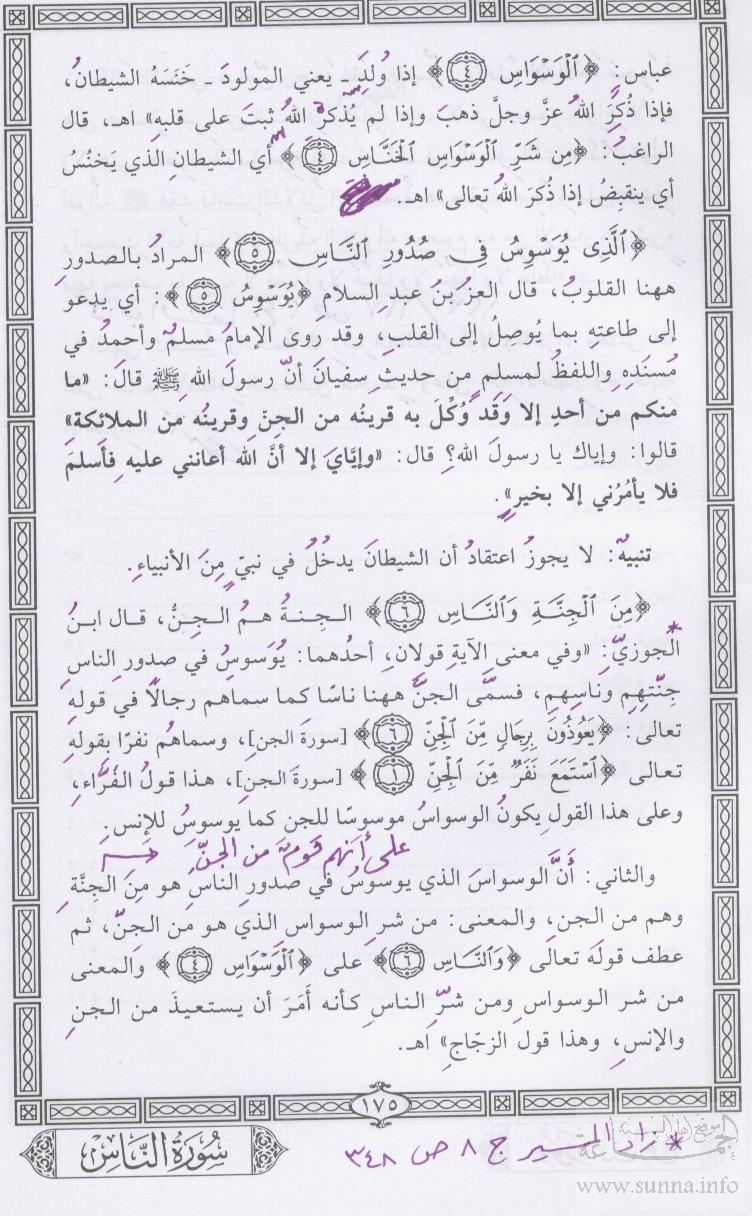 عباس: ﴿ٱلْوَسْوَاسِ ٤﴾ إذا وُلِدَ ـ يعني المولودَ ـ خَنَسَهُ الشيطانُ،
فإذا ذُكِرَ اللهُ عزَّ وجلَّ ذهبَ وإذا لم يُذكرُ اللهُ ثبتَ على قلبِهِ» اهـ، قال
الراغبُ: ﴿مِن شَرِّ ٱلْوَسْوَاسِ ٱلْخَنَّاسِ ٤﴾ أي الشيطانِ الذي يَخنُسُ
أي ينقبِضُ إذا ذُكرَ اللهُ تعالى» اهـ.
﴿ٱلَّذِى يُوَسْوِسُ فِى صُدُورِ ٱلنَّاسِ ٥﴾ المرادُ بالصدورِ
ههنا القلوبُ، قال العزُ بنُ عبدِ السلام ﴿يُوَسْوِسُ ٥﴾: أي يدعو
إلى طاعتِه بما يُوصِلُ إلى القلبِ، وقد روى الإمامُ مسلمٌ وأحمدُ في
مُسنَدِهِ واللفظُ لمسلمٍ من حديثِ سفيانَ أنّ رسولَ اللهِ ﷺ قالَ: «ما
منكم من أحدٍ إلا وَقَد وُكِّلَ به قرينُه من الجنِّ وقرينُه من الملائكةِ»
قالوا: وإياك يا رسولَ الله؟ قال: «وإيَّايَ إلا أنَّ الله أعانني عليهِ فأسلمَ
فلا يأمُرُني إلا بخيرٍ».
تنبيهٌ: لا يجوزُ اعتقادُ أن الشيطانَ يدخُلُ في نبيّ مِنَ الأنبياءِ.
﴿مِنَ ٱلْجِنَّةِ وَٱلنَّاسِ ٦﴾ الجِنةُ هـمُ الجِنُّ، قال ابـنُ
* الجوزيِّ: «وفي معنى الآيةِ قولانِ، أحدُهما: يُوَسوسُ في صدورِ الناسِ
جِنّتهِم وناسِهِم، فسمَّى الجنَّ ههنا ناسًا كما سماهم رجالًا في قولهِ
تعالى: ﴿يَعُوذُونَ بِرِجَالٍ مِّنَ ٱلْجِنِّ ٦﴾ [سورة الجن]، وسماهُم نفرًا بقولهِ
تعالى ﴿ٱسْتَمَعَ نَفَرٌ مِّنَ ٱلْجِنِّ ١﴾ [سورة الجن]، هذا قولُ الفَرَّاءِ،
وعلى هذا القولِ يكونُ الوسواسُ موسوسًا للجن كما يوسوسُ للإنسِ.
على أنهم قومٌ من الجنِّ
والثاني: أنَّ الوسواسَ الذي يوسوسُ في صدورِ الناسِ هو مِنَ الجِنَّةِ
وهم من الجن، والمعنى: من شرِ الوسواسِ الذي هو من الجنّ، ثم
عطف قولَه تعالى ﴿وَٱلنَّاسِ ٦﴾ على ﴿ٱلْوَسْوَاسِ ٤﴾ والمعنى
من شر الوسواسِ ومن شرِّ الناسِ كأنه أَمَرَ أن يستعيذَ من الجنِ
والإنسِ، وهذا قول الزجّاجِ» اهـ.
١٧٥
سُورَةُ النَّاسِ
* زاد المسير ج ٨ ص ٣٤٨
موقع أهل السنة
والجماعة
www.sunna.info